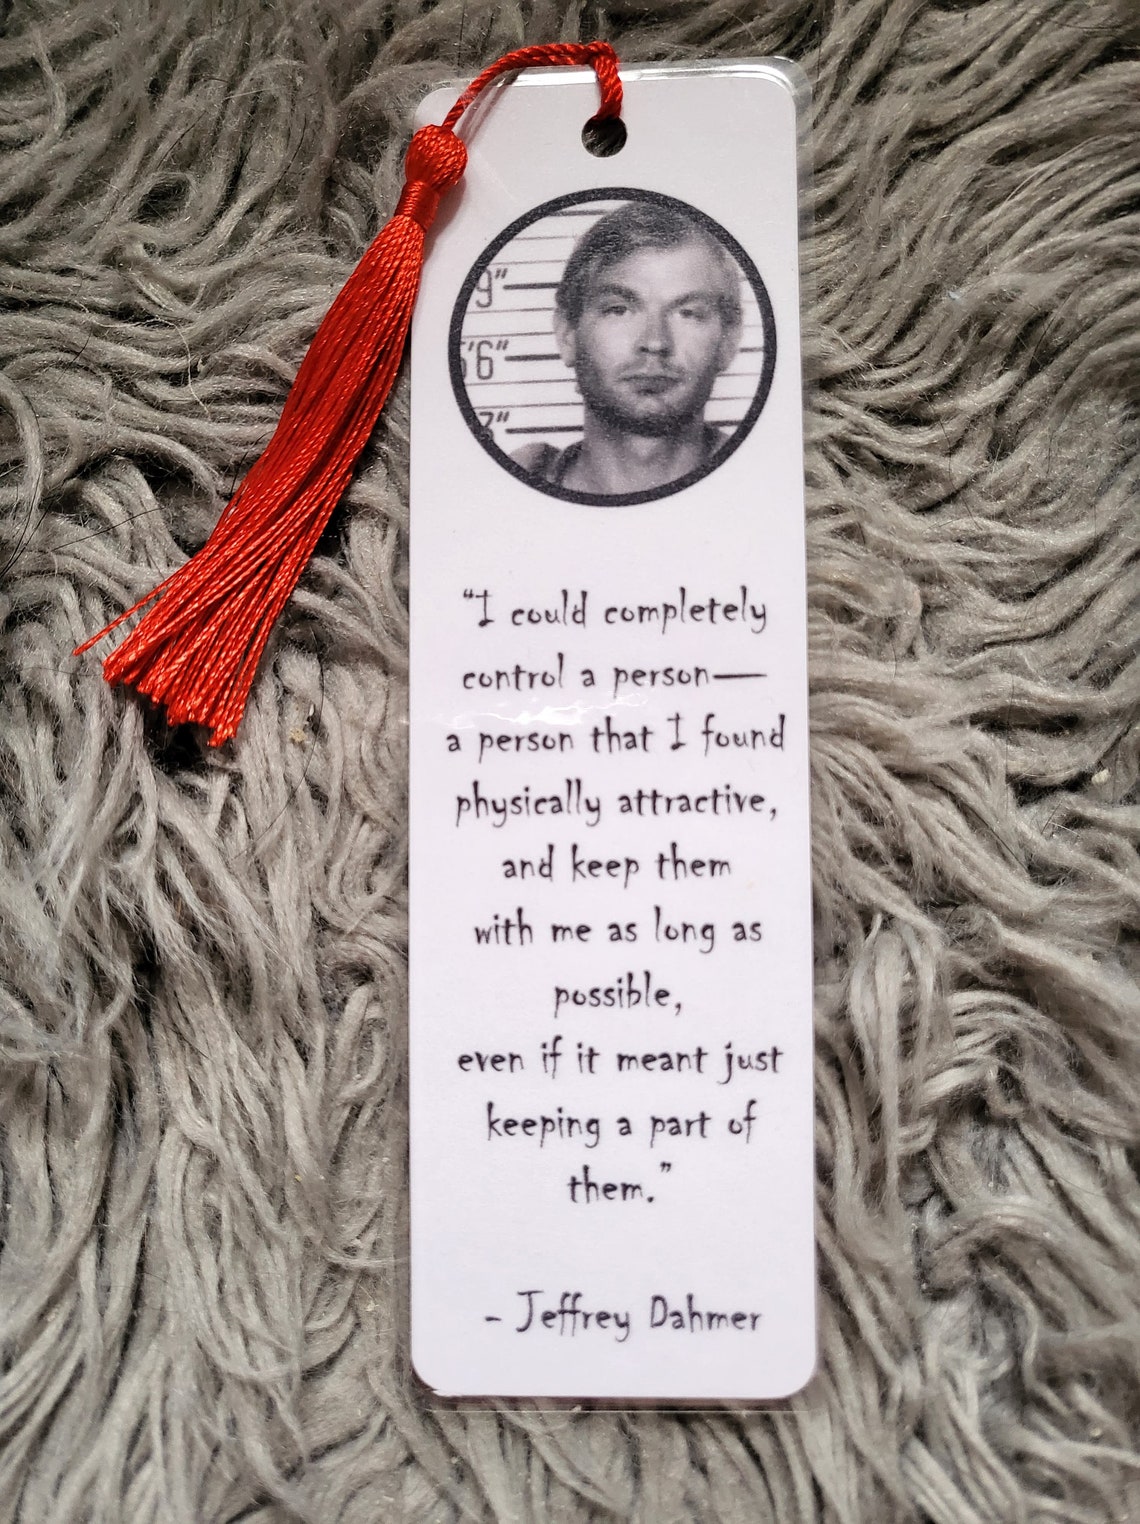 9"
'6"
3"
“I could completely
control a person—
a person that I found
physically attractive,
and keep them
with me as long as
possible,
even if it meant just
keeping a part of
them.”
- Jeffrey Dahmer